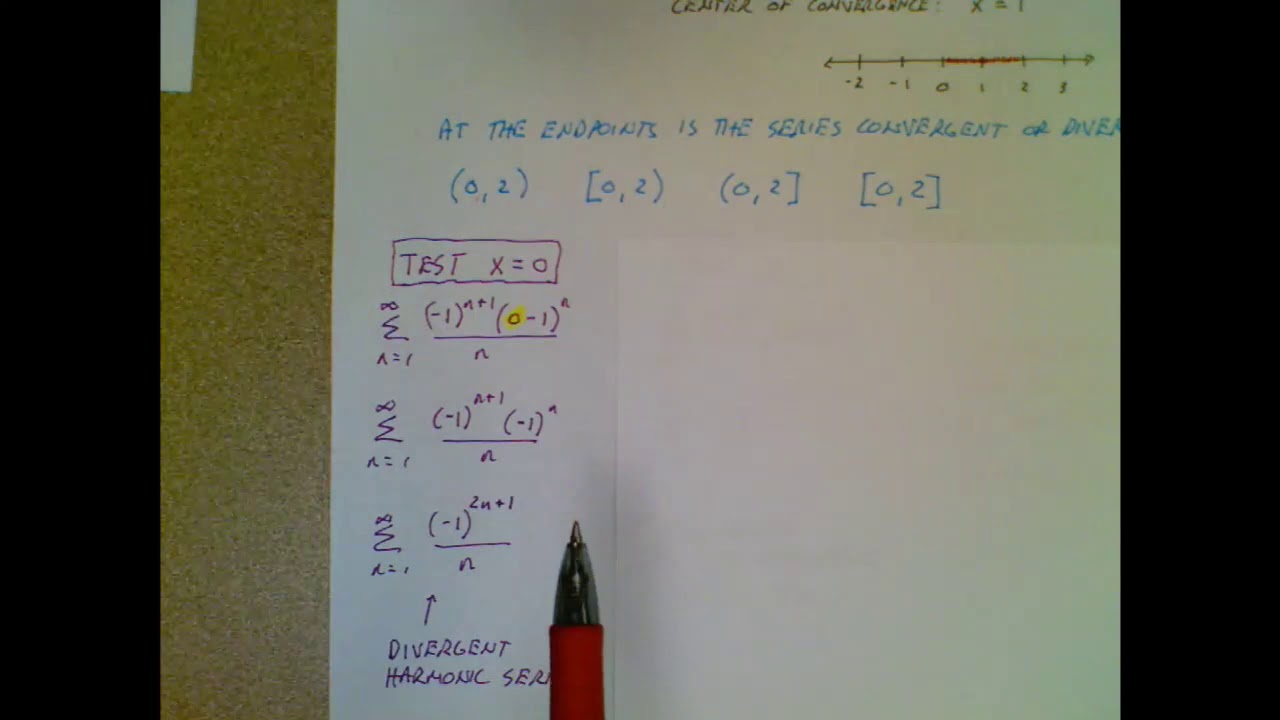 CENTER OF CONVERGENCE: X = 1
-2 -1 0 1 2 3
AT THE ENDPOINTS IS THE SERIES CONVERGENT OR
(0, 2) [0, 2) (0, 2] [0, 2]
TEST X = 0
∞ Σ n=1 (-1)^{n+1} (0-1)^n / n
∞ Σ n=1 (-1)^{n+1} (-1)^n / n
∞ Σ n=1 (-1)^{2n+1} / n
↑
DIVERGENT
HARMONIC